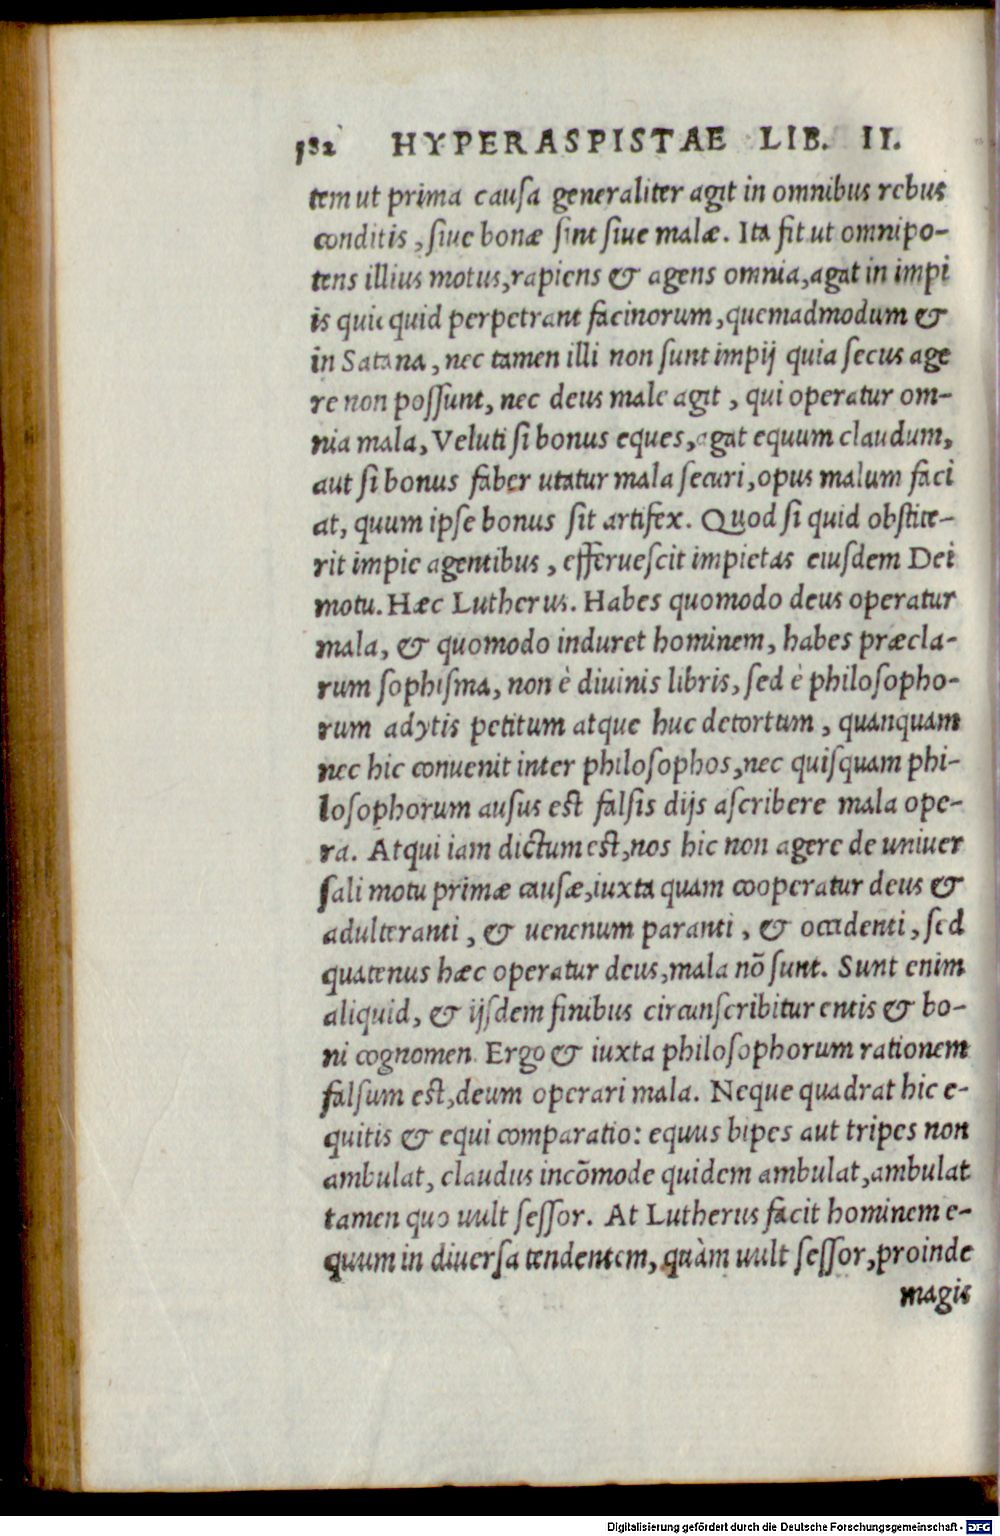 532 HYPERASPISTAE LIB. II.
tem ut prima causa generaliter agit in omnibus rebus
conditis, siue bonæ sint siue malæ. Ita fit ut omnipo-
tens illius motus, rapiens & agens omnia, agat in impi
is quicquid perpetrant facinorum, quemadmodum &
in Satana, nec tamen illi non sunt impij quia secus age
re non possunt, nec deus male agit, qui operatur om-
nia mala, Veluti si bonus eques, agat equum claudum,
aut si bonus faber utatur mala securi, opus malum faci
at, quum ipse bonus sit artifex. Quod si quid obstite-
rit impie agentibus, efferuescit impietas eiusdem Dei
motu. Hæc Lutherus. Habes quomodo deus operatur
mala, & quomodo induret hominem, habes præcla-
rum sophisma, non è diuinis libris, sed è philosopho-
rum adytis petitum atque huc detortum, quanquam
nec hic conuenit inter philosophos, nec quisquam phi-
losophorum ausus est falsis dijs ascribere mala ope-
ra. Atqui iam dictum est, nos hic non agere de uniuer
sali motu primæ causæ, iuxta quam cooperatur deus &
adulteranti, & uenenum paranti, & occidenti, sed
quatenus hæc operatur deus, mala nō sunt. Sunt enim
aliquid, & ijsdem finibus circunscribitur entis & bo-
ni cognomen. Ergo & iuxta philosophorum rationem
falsum est, deum operari mala. Neque quadrat hic e-
quitis & equi comparatio: equus bipes aut tripes non
ambulat, claudus incōmode quidem ambulat, ambulat
tamen quo uult sessor. At Lutherus facit hominem e-
quum in diuersa tendentem, quàm uult sessor, proinde
magis
Digitalisierung gefördert durch die Deutsche Forschungsgemeinschaft - DFG